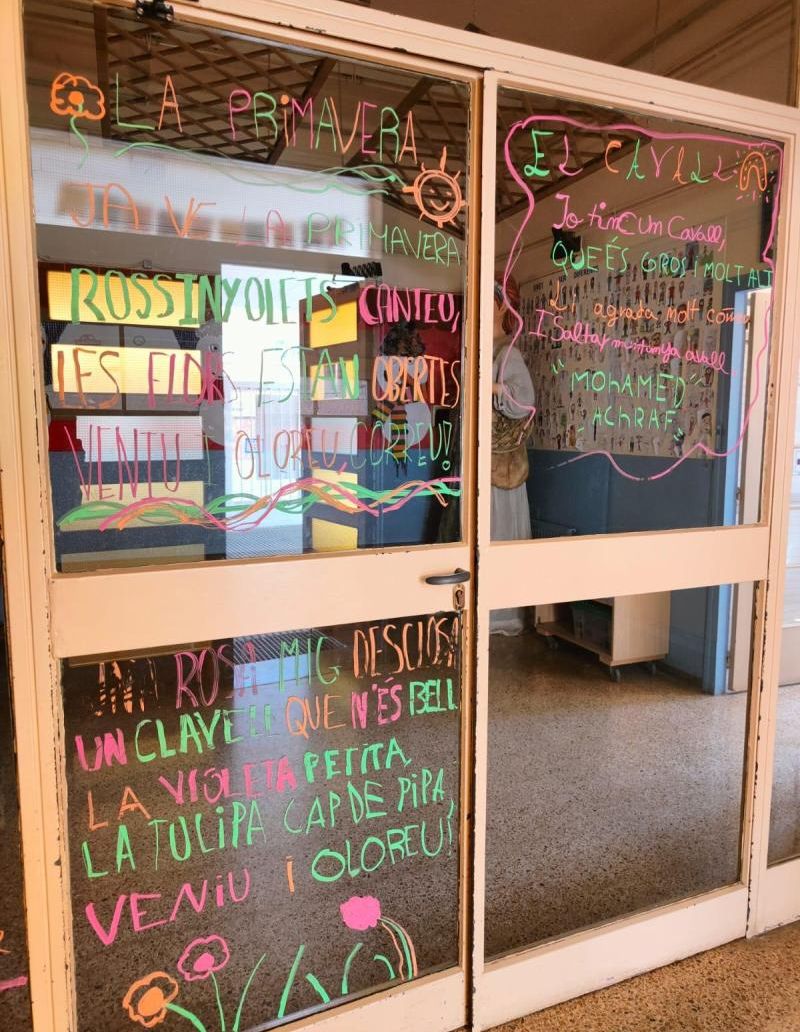 LA PRIMAVERA
JA VE LA PRIMAVERA
ROSSINYOLETS CANTEU,
LES FLORS ESTAN OBERTES
VENIU I OLOREU, CORREU!
UNA ROSA MIG DESCLOSA
UN CLAVELL QUE N'ÉS BELL
LA VIOLETA PETITA
LA TULIPA CAP DE PIPA,
VENIU I OLOREU!
EL CAVALL
Jo tinc un Cavall,
QUE ÉS GROS I MOLT ALT
Li agrada molt córrer
I Saltar muntanya avall.
"MOHAMED"
ACHRAF